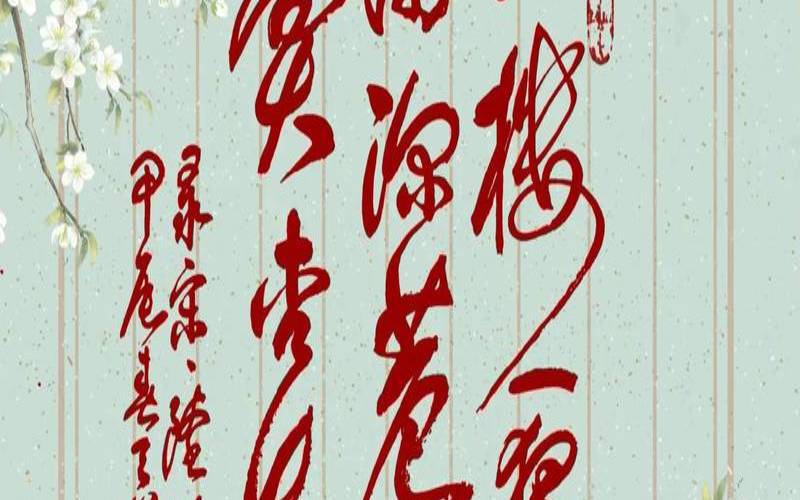 楼一夜
雨深巷
卖杏花
录宋、陆
甲辰春